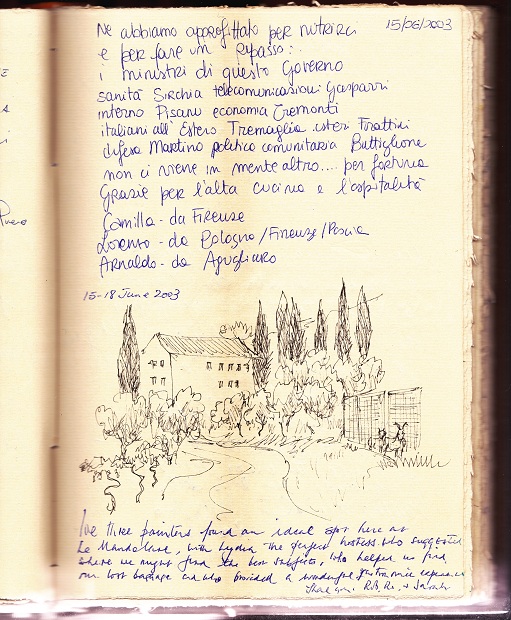 15/06/2003
Ne abbiamo approfittato per nutrirci
e per fare un ripasso:
i ministri di questo Governo
sanità Sirchia telecomunicazioni Gasparri
interno Pisanu economia Tremonti
italiani all'Estero Tremaglia esteri Frattini
difesa Martino politica comunitaria Buttiglione
non ci viene in mente altro.... per fortuna
Grazie per l'alta cucina e l'ospitalità
Camilla - da Firenze
Lorenzo - da Bologna/Firenze/Pescia
Arnaldo - da Agugliaro
15-18 June 2003
We three painters found an ideal spot here at
Le Mandolane, with Lydia the perfect hostess who suggested
where we might find the best subjects, who helped us find
our lost baggage and who provided a wonderful gastronomic experience
Thank you. & Sarah